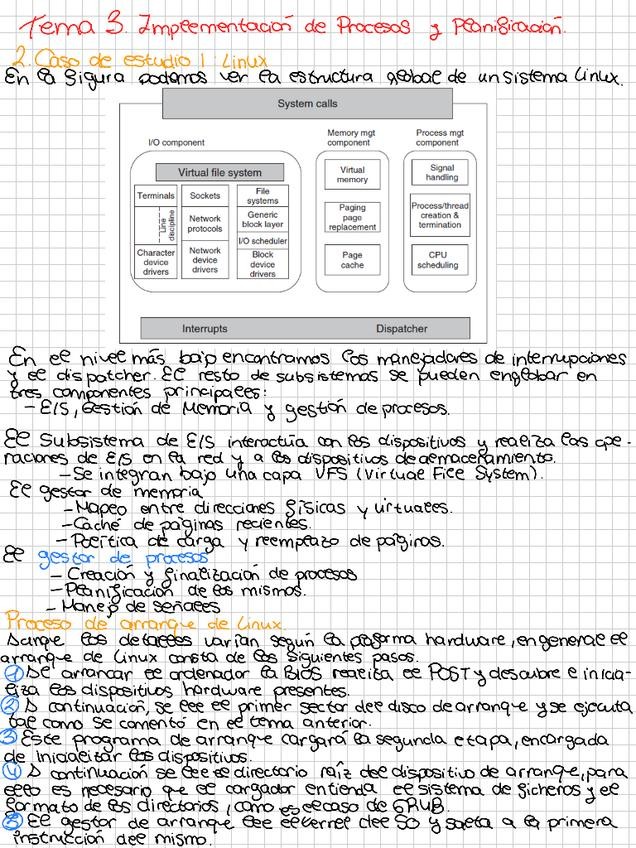 Tema 3. Implementación de Procesos y Planificación.
2. Caso de estudio 1: Linux
En la figura podemos ver la estructura global de un sistema Linux.
System calls
I/O component
Memory mgt component
Process mgt component
Virtual file system
Terminals
Sockets
File systems
Line discipline
Network protocols
Generic block layer
I/O scheduler
Character device drivers
Network device drivers
Block device drivers
Virtual memory
Paging page replacement
Page cache
Signal handling
Process/thread creation & termination
CPU scheduling
Interrupts
Dispatcher
En el nivel más bajo encontramos los manejadores de interrupciones
y el dispatcher. El resto de subsistemas se pueden englobar en
tres componentes principales:
- E/S, Gestión de Memoria y gestión de procesos.
El Subsistema de E/S interactúa con los dispositivos y realiza las ope-
raciones de E/S en la red y a los dispositivos de almacenamiento.
- Se integran bajo una capa VFS (Virtual File System).
El gestor de memoria
- Mapeo entre direcciones físicas y virtuales.
- Caché de páginas recientes.
- Política de carga y reemplazo de páginas.
El gestor de procesos
- Creación y finalización de procesos
- Planificación de los mismos.
- Manejo de señales
Proceso de arranque de Linux.
Aunque los detalles varían según la plataforma hardware, en general el
arranque de Linux consta de los siguientes pasos.
1 Al arrancar el ordenador la BIOS realiza el POST y descubre e inicia-
liza los dispositivos hardware presentes.
2 A continuación, se lee el primer sector del disco de arranque y se ejecuta
tal como se comentó en el tema anterior.
3 Este programa de arranque cargará la segunda etapa, encargada
de inicializar los dispositivos.
4 A continuación se lee el directorio raíz del dispositivo de arranque, para
ello es necesario que el cargador entienda el sistema de ficheros y el
formato de los directorios, como es el caso de GRUB.
5 El gestor de arranque lee el kernel del SO y salta a la primera
instrucción del mismo.